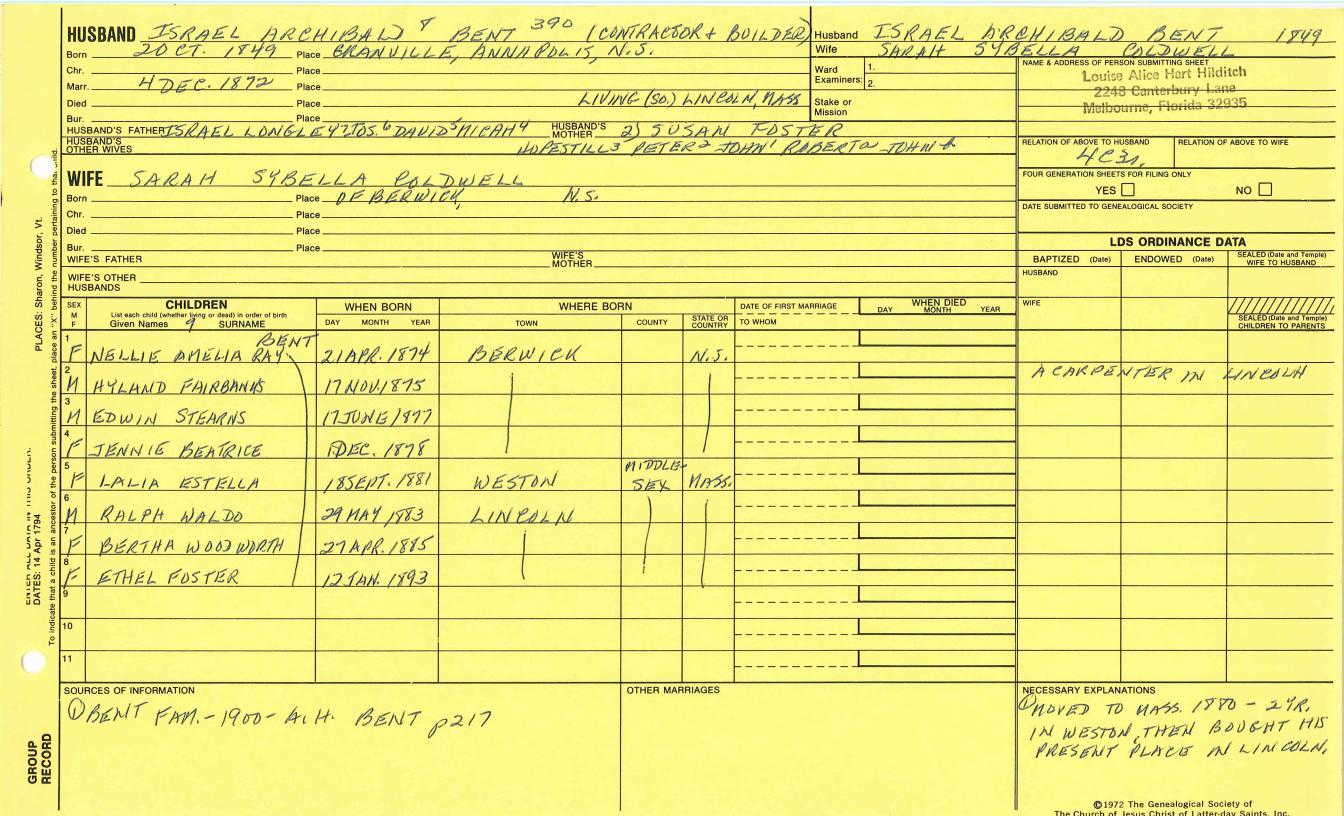 HUSBAND ISRAEL ARCHIBALD 8 BENT 390 (CONTRACTOR & BUILDER)
Born 20 OCT. 1849 Place GRANVILLE, ANNAPOLIS, N.S.
Chr. Place
Marr. 4 DEC. 1872 Place
Died Place LIVING (SO.) LINCOLN, MASS
Bur. Place
HUSBAND'S FATHER ISRAEL LONGLEY 7 JOS. 6 DAVID 5 MICAH 4 HUSBAND'S MOTHER 2) SUSAN FOSTER
HUSBAND'S OTHER WIVES HOPESTILL 3 PETER 2 JOHN 1 ROBERT a JOHN b
Husband ISRAEL ARCHIBALD BENT 1849
Wife SARAH SYBELLA COLDWELL
Ward Examiners: 1.
2.
Stake or Mission
NAME & ADDRESS OF PERSON SUBMITTING SHEET
Louise Alice Hart Hilditch
2248 Canterbury Lane
Melbourne, Florida 32935
RELATION OF ABOVE TO HUSBAND RELATION OF ABOVE TO WIFE
4C3r.
FOUR GENERATION SHEETS FOR FILING ONLY
YES NO
DATE SUBMITTED TO GENEALOGICAL SOCIETY
WIFE SARAH SYBELLA COLDWELL
Born Place OF BERWICK, N.S.
Chr. Place
Died Place
Bur. Place
WIFE'S FATHER WIFE'S MOTHER
WIFE'S OTHER HUSBANDS
LDS ORDINANCE DATA
BAPTIZED (Date) ENDOWED (Date) SEALED (Date and Temple) WIFE TO HUSBAND
HUSBAND
WIFE
SEALED (Date and Temple) CHILDREN TO PARENTS
SEX M F CHILDREN WHEN BORN WHERE BORN DATE OF FIRST MARRIAGE WHEN DIED
List each child (whether living or dead) in order of birth
Given Names 9 SURNAME DAY MONTH YEAR TOWN COUNTY STATE OR COUNTRY TO WHOM DAY MONTH YEAR
BENT
1 F NELLIE AMELIA RAY 21 APR. 1874 BERWICK N.S.
2 M HYLAND FAIRBANKS 17 NOV. 1875 A CARPENTER IN LINCOLN
3 M EDWIN STEARNS 17 JUNE 1877
4 F JENNIE BEATRICE 1 DEC. 1878
5 F LALIA ESTELLA 18 SEPT. 1881 WESTON MIDDLE-SEX MASS.
6 M RALPH WALDO 29 MAY 1883 LINCOLN
7 F BERTHA WOODWORTH 27 APR. 1885
8 F ETHEL FOSTER 12 JAN. 1893
9
10
11
SOURCES OF INFORMATION
① BENT FAM. - 1900 - A.H. BENT p217
OTHER MARRIAGES
NECESSARY EXPLANATIONS
① MOVED TO MASS. 1880 - 2 YR.
IN WESTON, THEN BOUGHT HIS
PRESENT PLACE IN LINCOLN.
©1972 The Genealogical Society of
The Church of Jesus Christ of Latter-day Saints, Inc.
GROUP RECORD
DATES: 14 Apr 1794
PLACES: Sharon, Windsor, Vt.
To indicate that a child is an ancestor of the person submitting the sheet, place an "X" behind the number pertaining to that child.